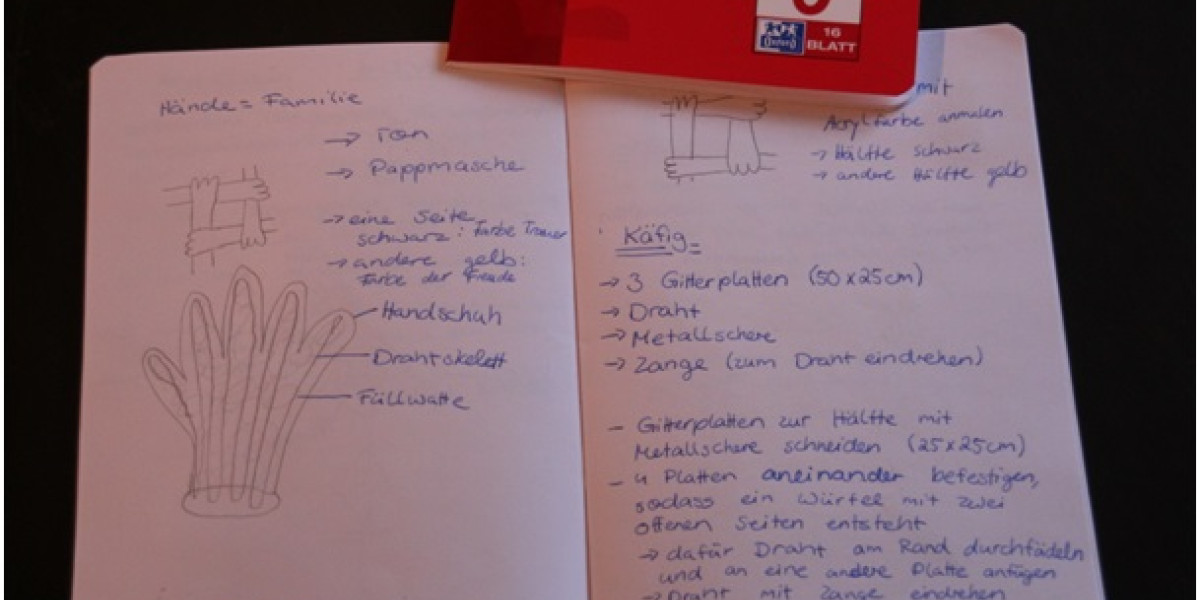 16
BLATT
Oxford
Hände = Familie
→ Ton
→ Pappmasche
→ eine Seite
schwarz: Farbe Trauer
→ andere gelb:
Farbe der Freude
Handschuh
Drahtskelett
Füllwatte
mit
Acrylfarbe anmalen
→ Hälfte schwarz
→ andere Hälfte gelb
Käfig
→ 3 Gitterplatten (50x25cm)
→ Draht
→ Metallschere
→ Zange (zum Draht eindrehen)
- Gitterplatten zur Hälfte mit
Metallschere schneiden (25x25cm)
- 4 Platten aneinander befestigen,
sodass ein Würfel mit zwei
offenen Seiten entsteht
→ dafür Draht am Rand durchfädeln
und an eine andere Platte anfügen
→ Draht mit Zange eindrehen